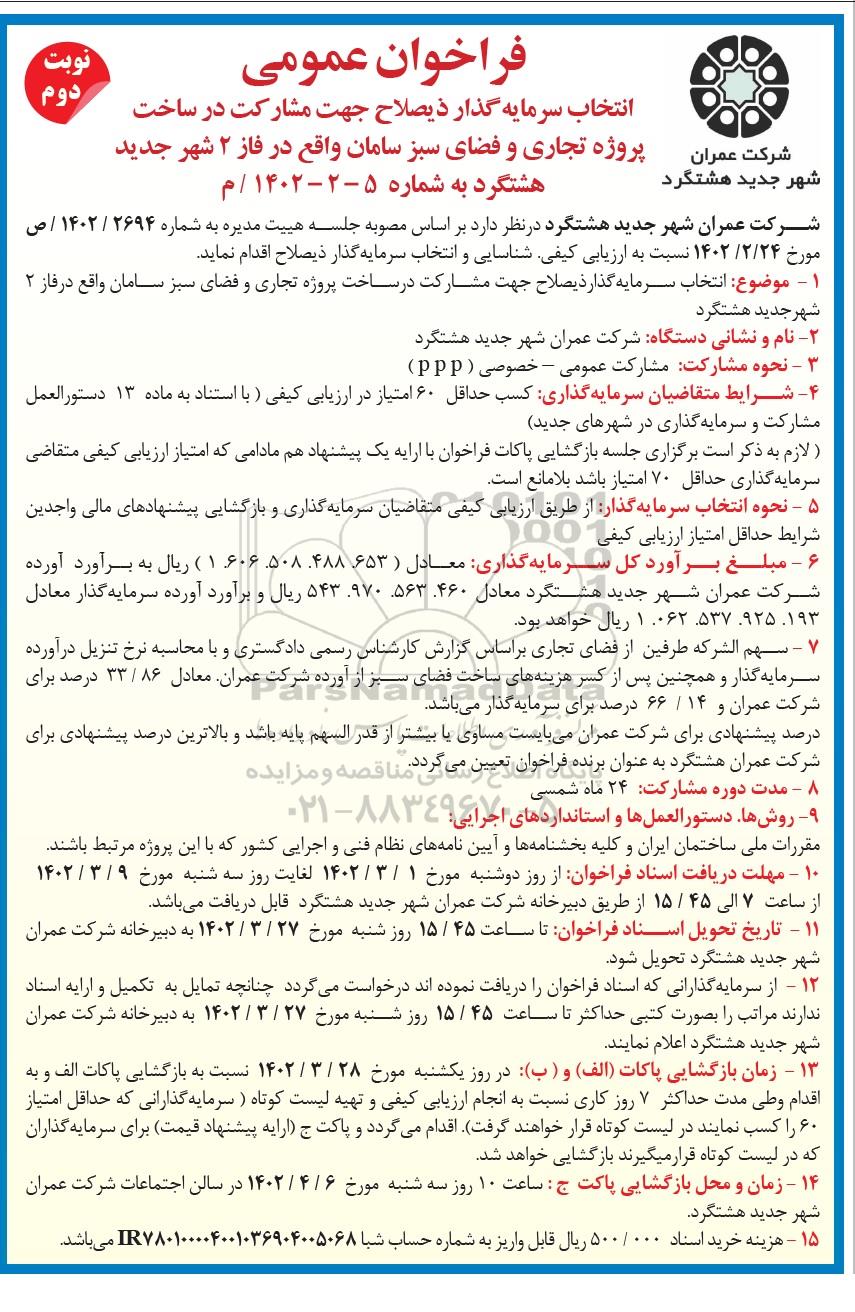 نوبت
دوم
فراخوان عمومی
انتخاب سرمایه‌گذار ذیصلاح جهت مشارکت در ساخت
پروژه تجاری و فضای سبز سامان واقع در فاز ۲ شهر جدید
هشتگرد به شماره ۵ - ۲ - ۱۴۰۲ / م
شرکت عمران
شهر جدید هشتگرد
شرکت عمران شهر جدید هشتگرد درنظر دارد بر اساس مصوبه جلسه هییت مدیره به شماره ۲۶۹۴ / ۱۴۰۲ / ص
مورخ ۱۴۰۲ /۲/۲۴ نسبت به ارزیابی کیفی. شناسایی و انتخاب سرمایه‌گذار ذیصلاح اقدام نماید.
۱ - موضوع: انتخاب سرمایه‌گذارذیصلاح جهت مشارکت درساخت پروژه تجاری و فضای سبز سامان واقع درفاز ۲
شهرجدید هشتگرد
۲- نام و نشانی دستگاه: شرکت عمران شهر جدید هشتگرد
۳ - نحوه مشارکت: مشارکت عمومی – خصوصی ( p p p )
۴- شرایط متقاضیان سرمایه‌گذاری: کسب حداقل ۶۰ امتیاز در ارزیابی کیفی ( با استناد به ماده ۱۳ دستورالعمل
مشارکت و سرمایه‌گذاری در شهرهای جدید)
( لازم به ذکر است برگزاری جلسه بازگشایی پاکات فراخوان با ارایه یک پیشنهاد هم مادامی که امتیاز ارزیابی کیفی متقاضی
سرمایه‌گذاری حداقل ۷۰ امتیاز باشد بلامانع است.
۵ - نحوه انتخاب سرمایه‌گذار: از طریق ارزیابی کیفی متقاضیان سرمایه‌گذاری و بازگشایی پیشنهادهای مالی واجدین
شرایط حداقل امتیاز ارزیابی کیفی
۶ - مبلغ برآورد کل سرمایه‌گذاری: معادل ( ۶۵۳. ۴۸۸. ۵۰۸. ۶۰۶. ۱ ) ریال به برآورد آورده
شرکت عمران شهر جدید هشتگرد معادل ۴۶۰. ۵۶۳. ۹۷۰. ۵۴۳ ریال و برآورد آورده سرمایه‌گذار معادل
۱۹۳. ۹۲۵. ۵۳۷. ۰۶۲. ۱ ریال خواهد بود.
۷ - سهم الشرکه طرفین از فضای تجاری براساس گزارش کارشناس رسمی دادگستری و با محاسبه نرخ تنزیل درآورده
سرمایه‌گذار و همچنین پس از کسر هزینه‌های ساخت فضای سبز از آورده شرکت عمران. معادل ۸۶ / ۳۳ درصد برای
شرکت عمران و ۱۴ / ۶۶ درصد برای سرمایه‌گذار می‌باشد.
درصد پیشنهادی برای شرکت عمران می‌بایست مساوی یا بیشتر از قدر السهم پایه باشد و بالاترین درصد پیشنهادی برای
شرکت عمران هشتگرد به عنوان برنده فراخوان تعیین می‌گردد.
۸ - مدت دوره مشارکت: ۲۴ ماه شمسی
۹- روش‌ها. دستورالعمل‌ها و استانداردهای اجرایی:
مقررات ملی ساختمان ایران و کلیه بخشنامه‌ها و آیین نامه‌های نظام فنی و اجرایی کشور که با این پروژه مرتبط باشند.
۱۰ - مهلت دریافت اسناد فراخوان: از روز دوشنبه مورخ ۱ / ۳ / ۱۴۰۲ لغایت روز سه شنبه مورخ ۹ / ۳ / ۱۴۰۲
از ساعت ۷ الی ۴۵ / ۱۵ از طریق دبیرخانه شرکت عمران شهر جدید هشتگرد قابل دریافت می‌باشد.
۱۱ - تاریخ تحویل اسناد فراخوان: تا ساعت ۴۵ / ۱۵ روز شنبه مورخ ۲۷ / ۳ / ۱۴۰۲ به دبیرخانه شرکت عمران
شهر جدید هشتگرد تحویل شود.
۱۲ - از سرمایه‌گذارانی که اسناد فراخوان را دریافت نموده اند درخواست می‌گردد چنانچه تمایل به تکمیل و ارایه اسناد
ندارند مراتب را بصورت کتبی حداکثر تا ساعت ۴۵ / ۱۵ روز شنبه مورخ ۲۷ / ۳ / ۱۴۰۲ به دبیرخانه شرکت عمران
شهر جدید هشتگرد اعلام نمایند.
۱۳ - زمان بازگشایی پاکات (الف) و ( ب): در روز یکشنبه مورخ ۲۸ / ۳ / ۱۴۰۲ نسبت به بازگشایی پاکات الف و به
اقدام وطی مدت حداکثر ۷ روز کاری نسبت به انجام ارزیابی کیفی و تهیه لیست کوتاه ( سرمایه‌گذارانی که حداقل امتیاز
۶۰ را کسب نمایند در لیست کوتاه قرار خواهند گرفت). اقدام می‌گردد و پاکت ج (ارایه پیشنهاد قیمت) برای سرمایه‌گذاران
که در لیست کوتاه قرارمیگیرند بازگشایی خواهد شد.
۱۴ - زمان و محل بازگشایی پاکت ج : ساعت ۱۰ روز سه شنبه مورخ ۶ / ۴ / ۱۴۰۲ در سالن اجتماعات شرکت عمران
شهر جدید هشتگرد.
۱۵ - هزینه خرید اسناد ۰۰۰ / ۵۰۰ ریال قابل واریز به شماره حساب شبا IR۷۸۰۱۰۰۰۰۴۰۰۱۰۳۶۹۰۴۰۰۵۰۶۸ می‌باشد.
ParsNamadData
پایگاه اطلاع رسانی مناقصه و مزایده
۰۲۱-۸۸۳۴۹۶۷۰-۵